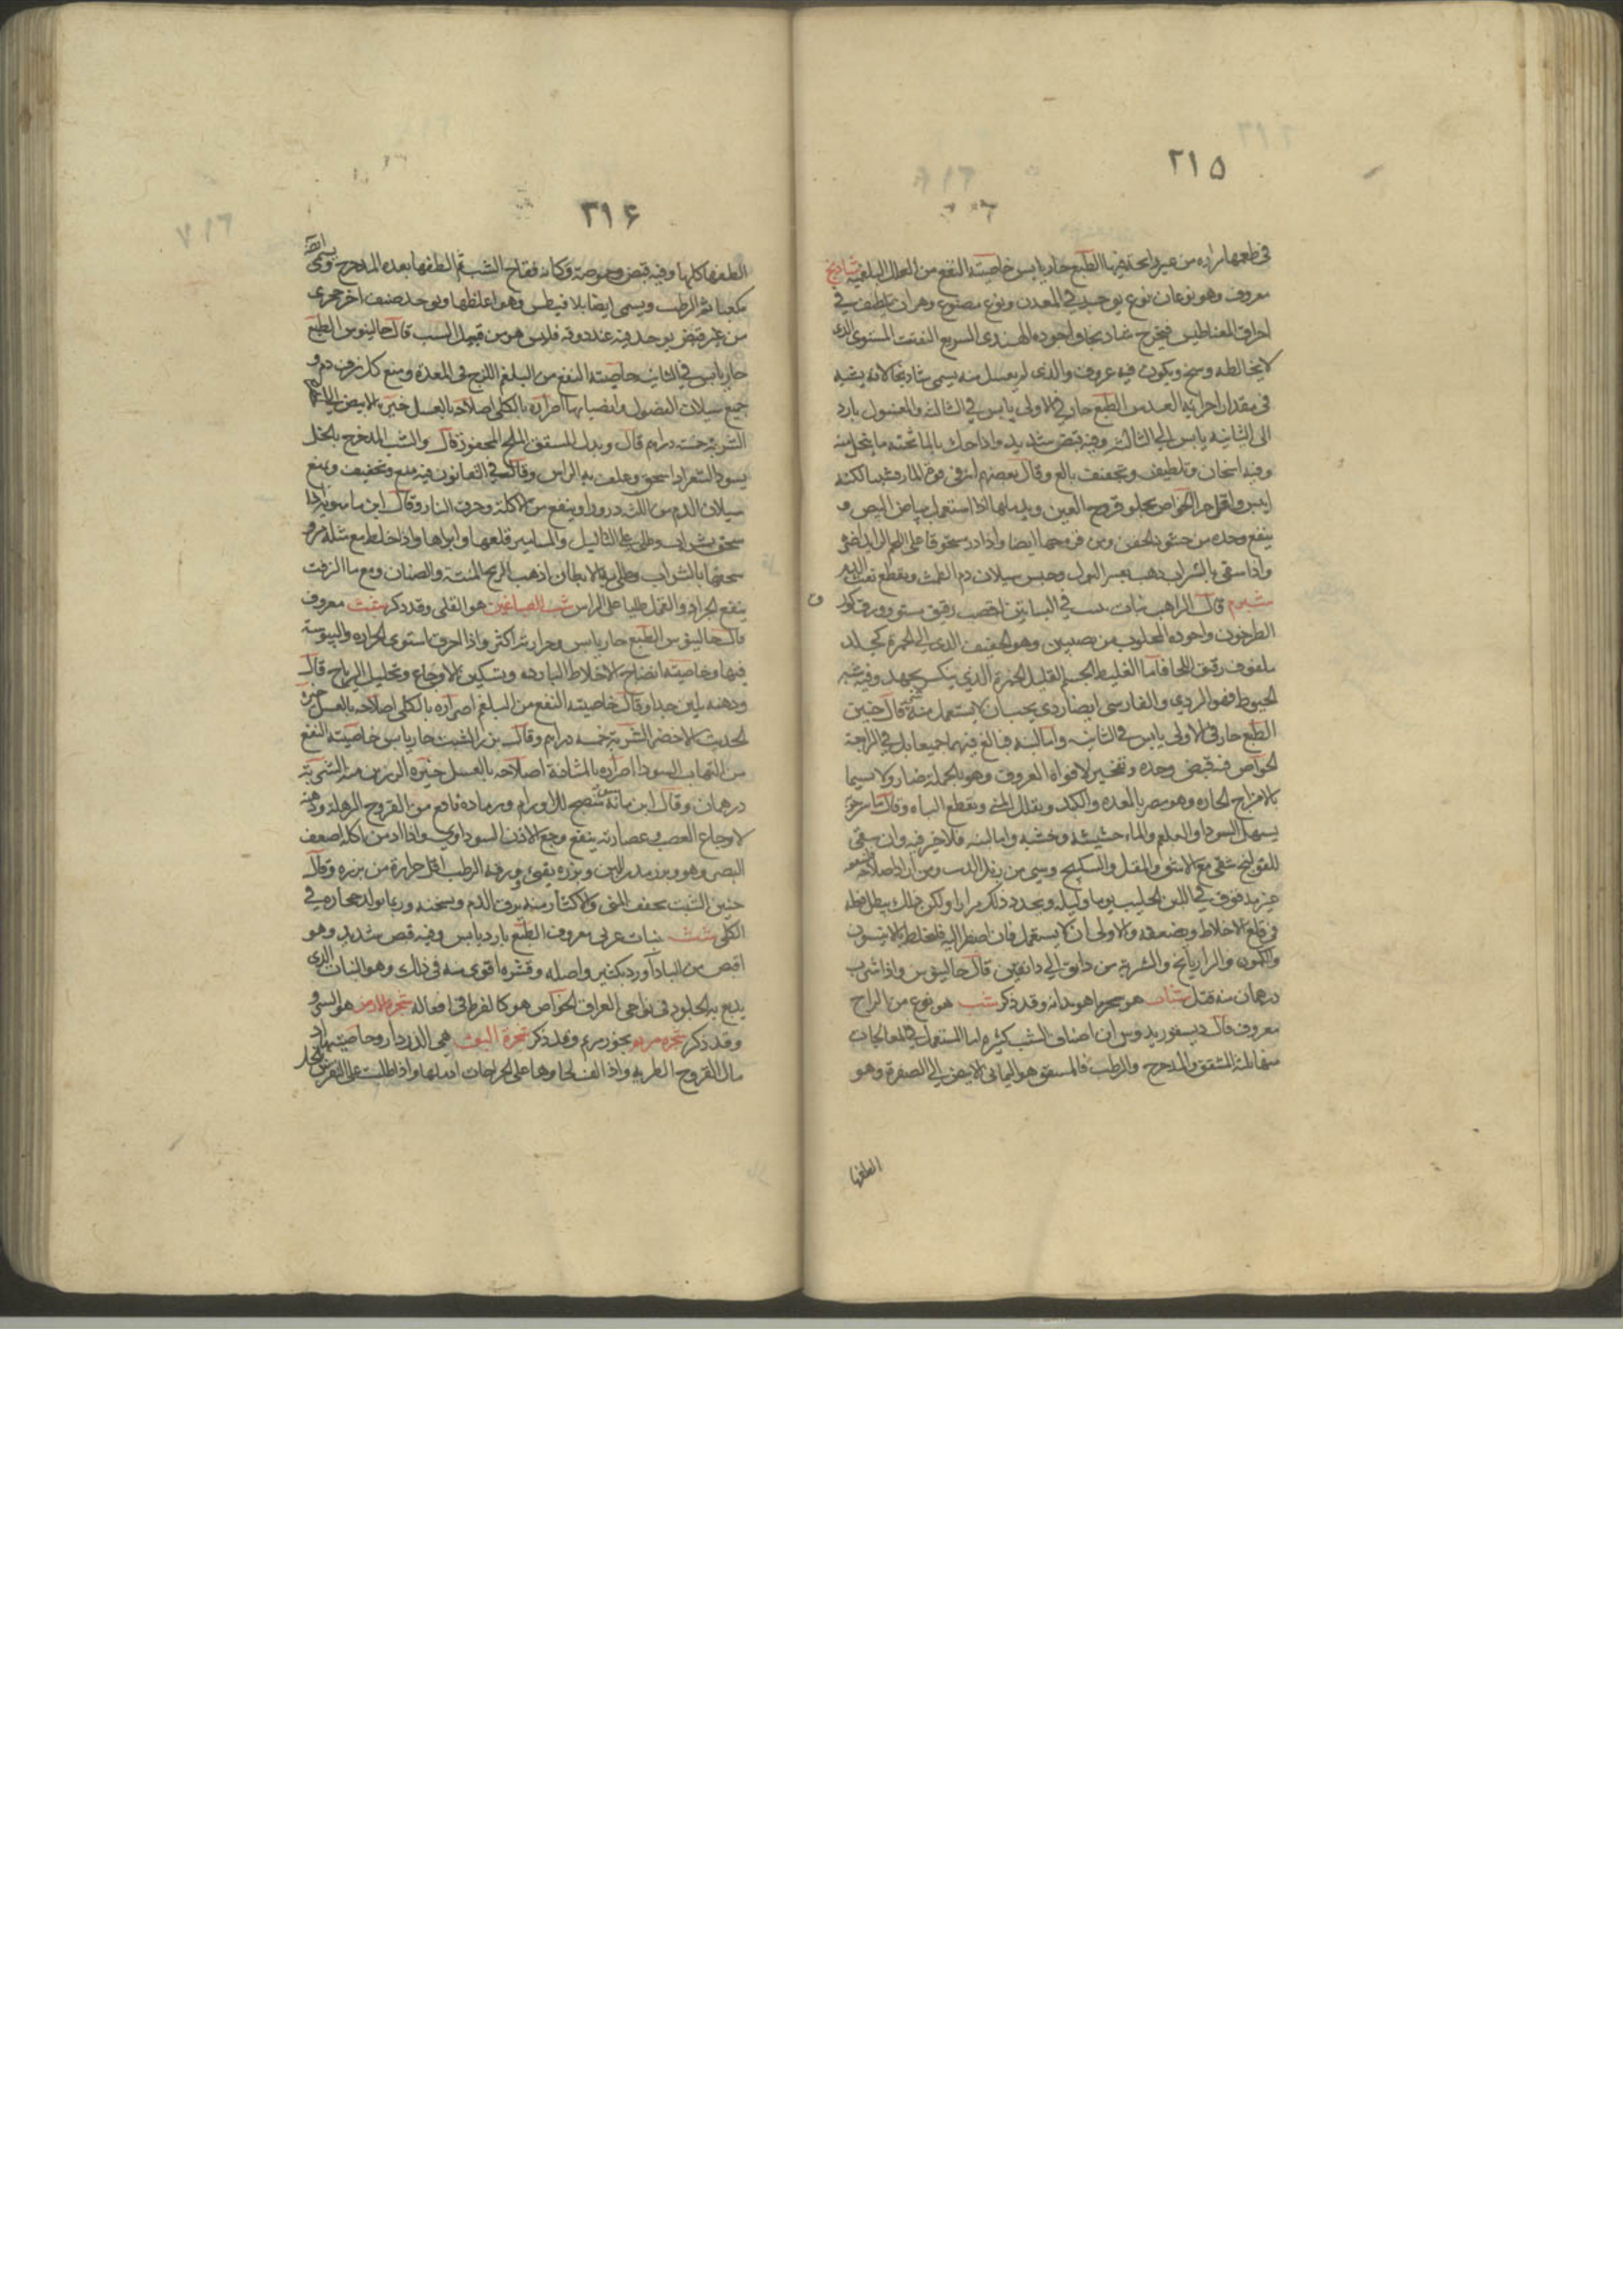 ٣١٥
في طعمها مرارة من غير رائحة فيها الطبع حار يابس خاصيته النفع من العلل البلغمية شادنج
معروف وهو نوعان نوع يوجد في المعدن ونوع مصنوع وهو ان يلطف في
احراق المغناطيس فيخرج شادنجا واجوده الهندي السريع التفتت المستوي الذي
لا يخالطه وسخ ويكون فيه عروق والذي لم يغسل منه يسمى شادنجا لانه يشبه
في مقدار اجزائه العدس الطبع حار في الاولى يابس في الثالثة والمغسول بارد
الى الثانية يابس الى الثالثة وفيه قبض شديد واذا حك بالماء تحته ما ينحل منه
وفيه اسخان وتلطيف وتجفيف بالغ وقال بعضهم انه في قوة المارقشيثا لكنه
ايبس واقل حرا الخواص يجلو قروح العين ويدملها اذا استعمل ببياض البيض و
ينفع وحده من خشونة الجفن ومن قروحها ايضا واذا ذر مسحوقا على اللحم الزايد اضمره
واذا سقي بالشراب ذهب بعسر البول وحبس سيلان دم الطمث ويقطع نفث الدم
شبرم قال الراهب نبات ينبت في البساتين له قصب رقيق مستو وورق كورق
الطرخون واجوده المجلوب من نصيبين وهو الخفيف الذي الى الحمرة كجلد
ملفوف رقيق اللحا فاما الغليظ الجسم القليل الحمرة الذي ينكسر بجهد وفيه شبه
الخيوط فهو الردي والفارسي ايضا ردي يجب ان لا يستعمل منه شيء قال حنين
الطبع حار في الاولى يابس في الثانية واما لبنه فبالغ فيهما جميعا بل في الرابعة
الخواص فيه قبض وحده وتفجير لافواه العروق وهو بالجملة ضار ولا سيما
بالامزاج الحارة وهو مضر بالمعدة والكبد ويقلل المني ويقطع الباه وقال ماسرجويه
يسهل السودا والبلغم والماء حشيشه وخشبه واما لبنه فلا خير فيه وان سقي
للقولنج سقي مع الاشق والمقل والسكبينج وشيء من زبل الذئب ومن اراد اصلاحه
حين يدق في اللبن الحليب يوما وليلة ويجدد ذلك مرارا ولكن ذلك يبطل فعله
في قلع الاخلاط ويضعفه والاولى ان لا يستعمل فان اضطر اليه فليخلط بالانيسون
والكمون والرازيانج والشربة من دانق الى دانقين قال جالينوس واذا شرب
درهمان منه قتل شباب هو بحر ماهويدانه وقد ذكر شب هو نوع من الزاج
معروف قال ديسقوريدوس ان اصناف الشب كثيرة اما المستعمل في المعالجات
منها ثلثة المشقق والمدحرج والرطب فالمشقق هو اليماني الابيض الى الصفرة وهو
الطفها
٣١۶
الطفها كلها وفيه قبض وحموضة وكانه فقاح الشب ثم الطفها بعده المدحرج ويسمى ايضا
مكعبا ثم الرطب ويسمى ايضا بلافيطس وهو اغلظها ويوجد صنف اخر حجري
من غير قبض يوجد فيه عند ذوقه فليس هو من قبيل الشب قال جالينوس الطبع
حار يابس في الثانية خاصيته النفع من البلغم اللزج في المعدة ومنع كل نزف دم و
جميع سيلان الفضول وانصبابها اضراره بالكلى اصلاحه بالعسل خيره الابيض اليماني
الشربة خمسة دراهم قال وبدل المشقق الملح المحفور قال والشب المدحرج بالخل
يسود الشعر اذا سحق وغلف به الراس وقال في القانون فيه منع وتجفيف ويمنع
سيلان الدم من اللثة ذرورا وينفع من الاكلة وحرق النار وقال ابن ماسويه اذا
سحق بشراب وطلي على الثاليل والمسامير قلعها وابراها واذا خلط مع مثله مرو
سحقهما بالشراب وطلي به الابطان اذهب الريح المنتنة والصنان ومع ماء الزفت
ينفع الجراد والقمل طليا على الراس شب الصباغين هو القلى وقد ذكر شبت معروف
قال جالينوس الطبع حار يابس وحرارته اكثر واذا احرق استوى الحرارة واليبوسة
فيها وخاصيته انضاج الاخلاط الباردة وتسكين الاوجاع وتحليل الرياح قال
ودهنه يلين جدا وقال خاصيته النفع من البلغم اضراره بالكلى اصلاحه بالعسل خيره
الحديث الاخضر الشربة خمسة دراهم وقال بزر الشبت حار يابس خاصيته النفع
من التهاب السودا اضراره بالمثانة اصلاحه بالعسل خيره الرزين منه الشربة
درهمان وقال ابن ماسة منضج للاورام ورماده نافع من القروح الرهلة ودهنه
لاوجاع العصب وعصارته ينفع وجع الاذن السوداوي واذا ادمن اكله اضعف
البصر وهو وبزره يدر اللبن وبزره يقيئ وورقه الرطب اقل حرارة من بزره وقال
حنين الشبت يجفف المني والاكثار منه يرق الدم ويسخنه وربما تولد حجارة في
الكلى شث نبات عربي معروف الطبع بارد يابس وفيه قبض شديد وهو
اقبض من الباداورد بكثير واصله وقشره اقوى منه في ذلك وهو النبات الذي
يدبغ به الجلود في نواحي العراق الخواص هو كالقرظ في افعاله شجرة الارز هو السرو
وقد ذكر شجرة مريم بخور مريم وقد ذكر شجرة البق هي الدردار وخاصيتها
مال القروح الطرية واذا لف لحاوها على الجراحات ادملها واذا طليت على النقرس